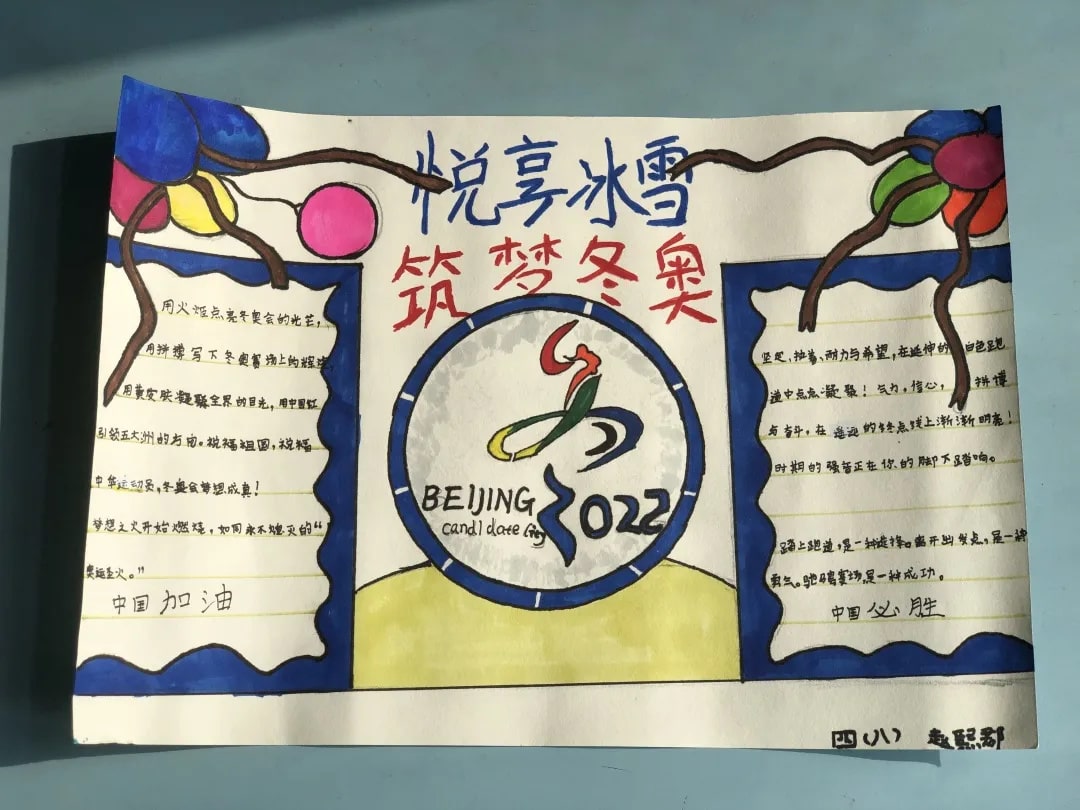 悦享冰雪
筑梦冬奥
用火炬点亮冬奥会的光芒，
用拼搏写下冬奥赛场上的辉
用黄皮肤凝聚全界的目光，用中国红
引领五大洲的方向。祝福祖国，祝福
中华运动员，冬奥会梦想成真！
梦想之火开始燃烧，如同永不熄灭的“
奥运圣火。”
中国加油
BEIJING 2022
candidate City
坚定、执着、耐力与希望，在延伸的白色跑
道中点点凝聚！气力，信心，拼搏
与奋斗，在遥远的终点线上渐渐明亮！
时期的强音正在你的脚下踏响。
踏上跑道，是一种选择。离开出发点，是一种
勇气。驰骋赛场，是一种成功。
中国必胜
四（八） 赵熙郡